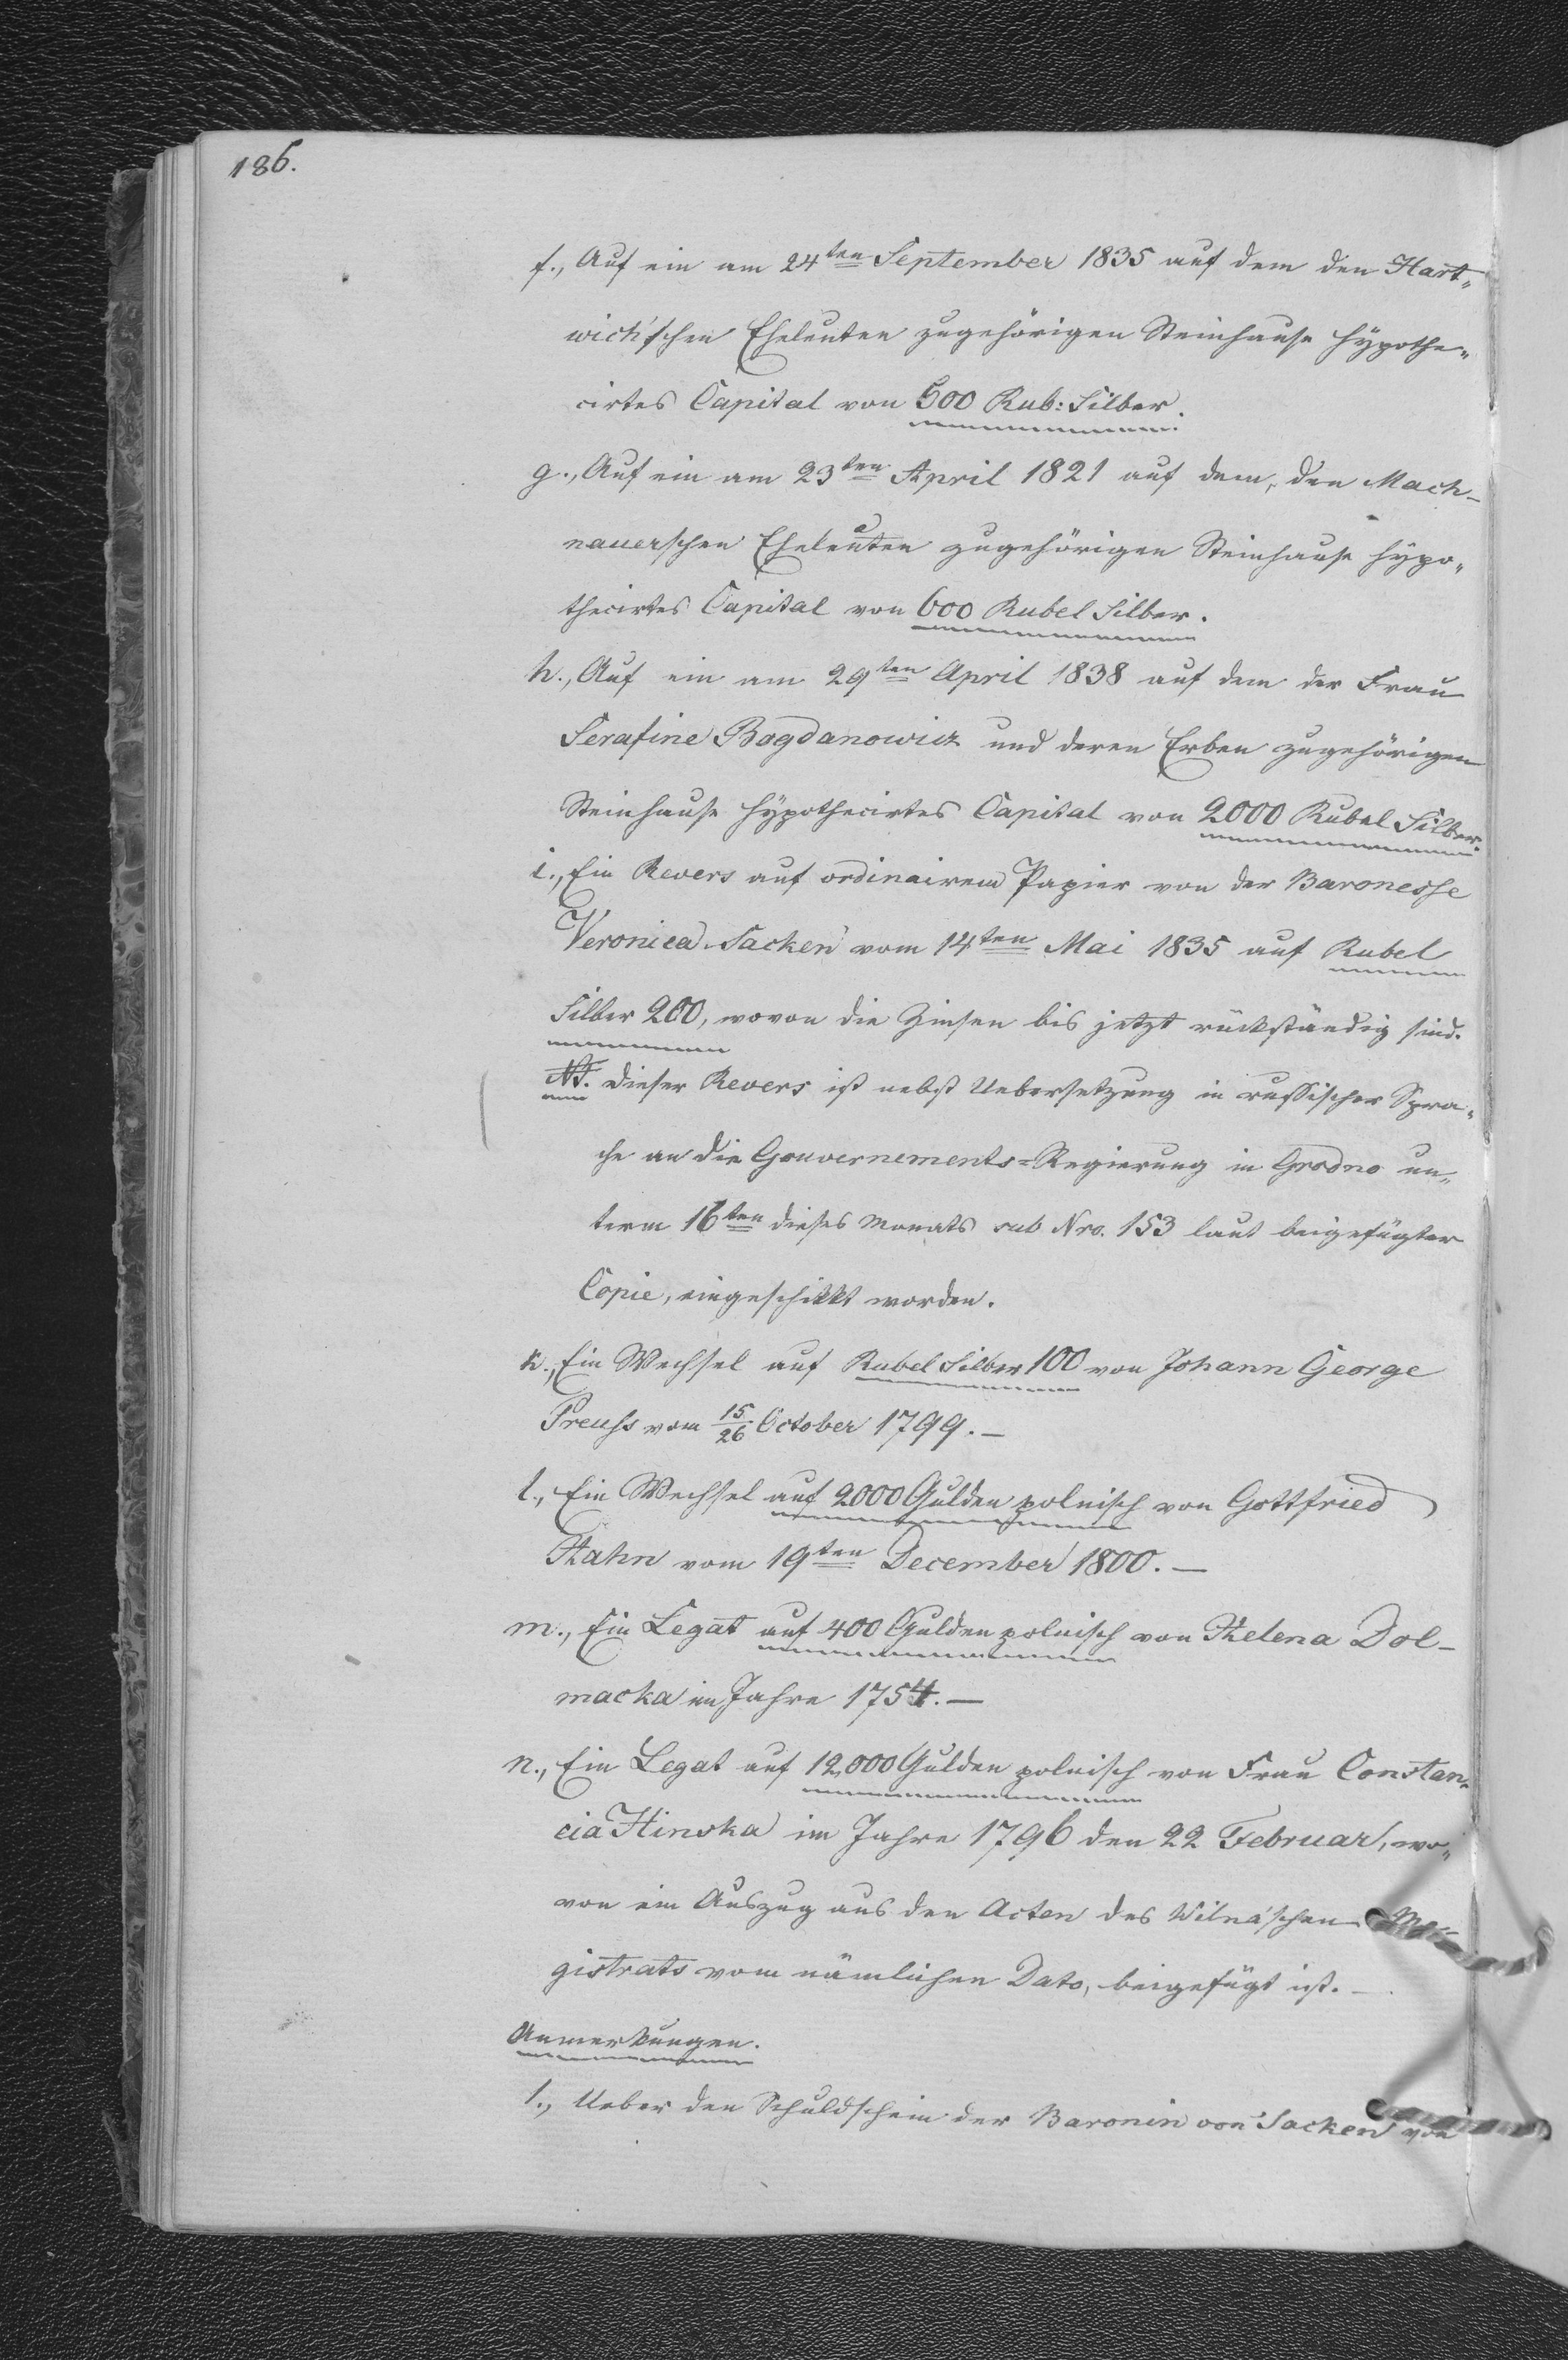 186.
f., Auf ein am 24ten September 1835 auf dem den Hart„
wich'schen Eheleuten zugehörigen Steinhause hypothe„
cirtes Capital von 500 Rub: Silber.
g., Auf ein am 23ten April 1821 auf dem, den Mach-
nauerschen Eheleuten zugehörigen Steinhause hypo„
thecirtes Capital von 600 Rubel Silber.
h., Auf ein am 29ten April 1838 auf dem der Frau
Serafine Bogdanowicz und deren Erben zugehörigen
Steinhause hypothecirtes Capital von 2000 Rubel Silber.
i., Ein Revers auf ordinairem Papier von der Baronesse
Veronica Sacken vom 14ten Mai 1835 auf Rubel
Silber 200, wovon die Zinsen bis jetzt rückständig sind.
Dieser Revers ist nebst Uebersetzung in russischer Spra„
che an die Gouvernements-Regierung in Grodno un„
term 16ten dieses Monats sub Nro. 153 laut beigefügter
Copie, eingeschikkt worden.
k., Ein Wechsel auf Rubel Silber 100 von Johann George
Preuss vom 15/26 October 1799.—
l., Ein Wechsel auf 2000 Gulden polnisch von Gottfried
Hahn vom 19ten December 1800.—
m., Ein Legat auf 400 Gulden polnisch von Helena Dol-
macka im Jahre 1754.—
n., Ein Legat auf 12,000 Gulden polnisch von Frau Constan„
cia Hinska im Jahre 1796 den 22 Februar, wo„
von ein Auszug aus den Acten des Wilna'schen Ma„
gistrats vom nämlichen Dato, beigefügt ist.—
Anmerkungen.
1., Ueber den Schuldschein der Baronin von Sacken von